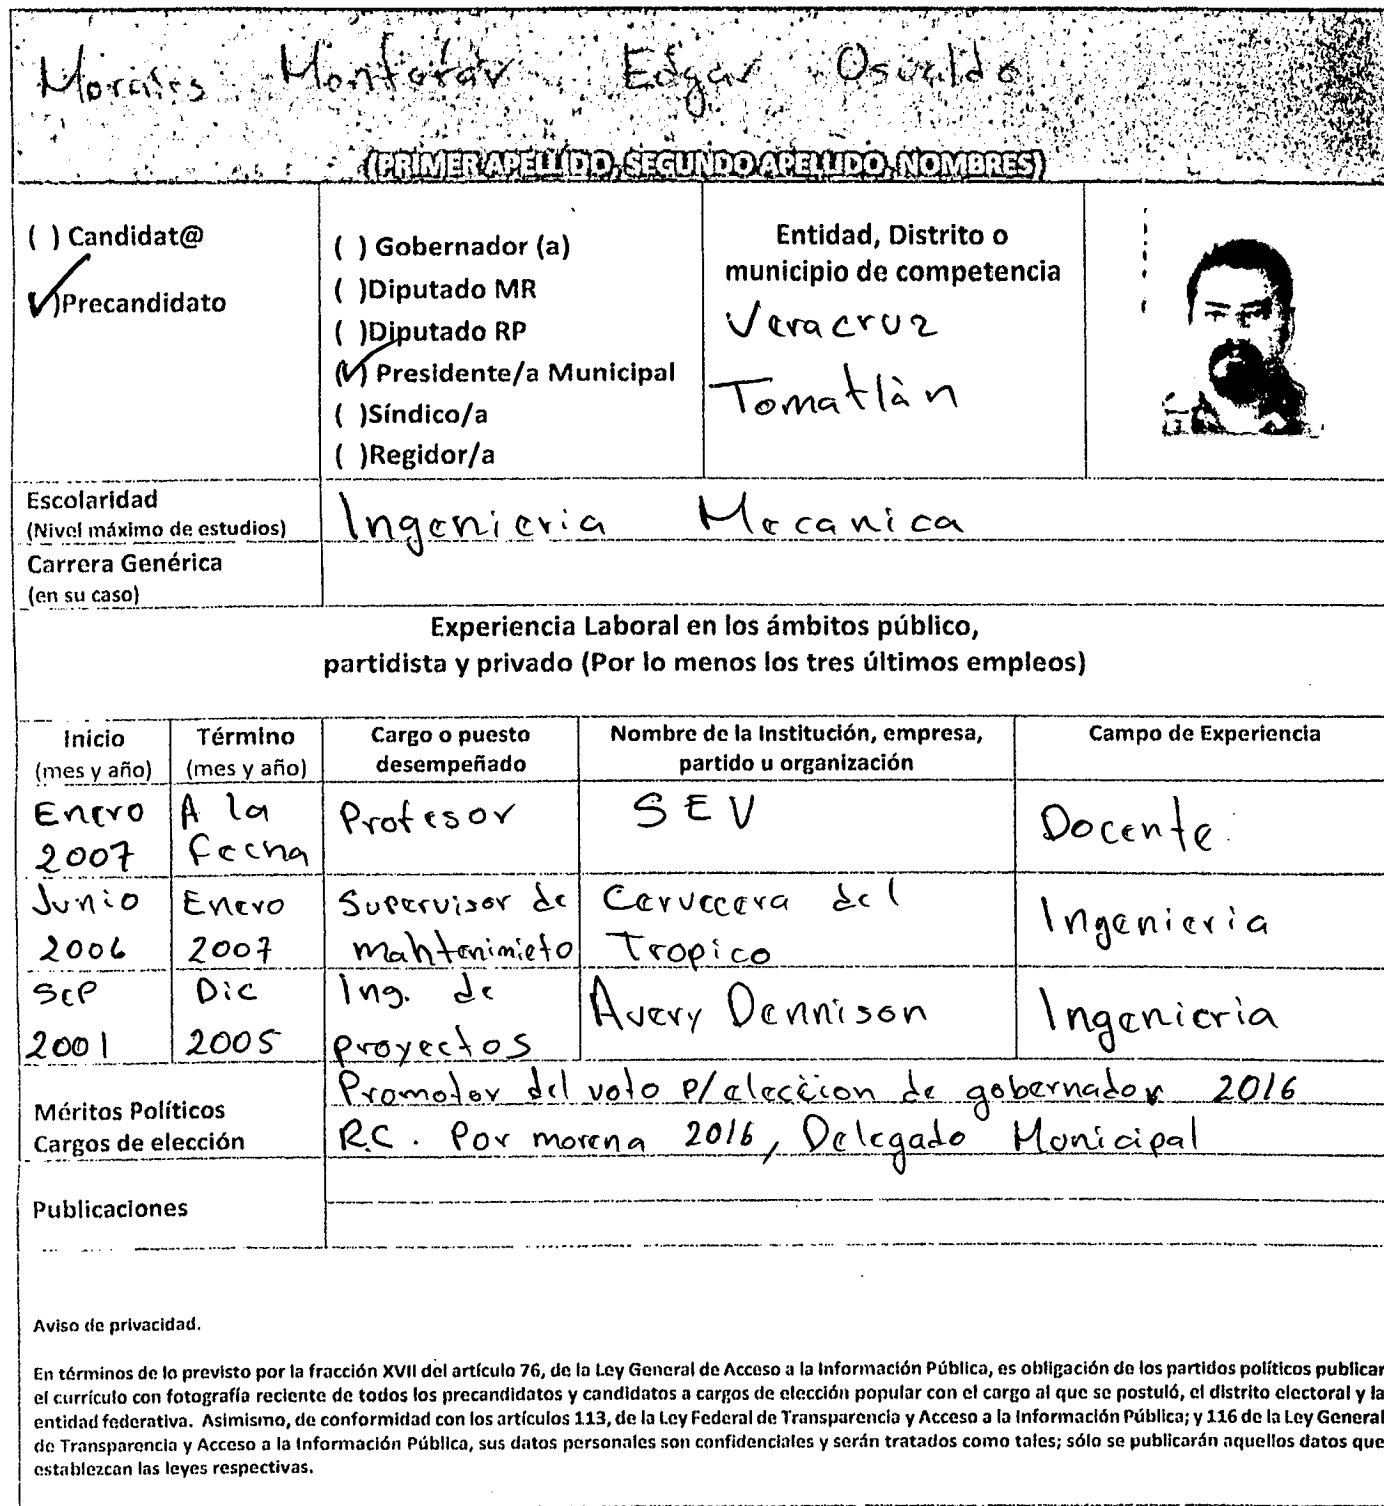 Morales Monterav Edgar Osvaldo
(PRIMER APELLIDO, SEGUNDO APELLIDO, NOMBRES)
( ) Candidat@
(✓)Precandidato
( ) Gobernador (a)
( )Diputado MR
( )Diputado RP
(✓) Presidente/a Municipal
( )Síndico/a
( )Regidor/a
Entidad, Distrito o
municipio de competencia
Veracruz
Tomatlàn
Escolaridad
(Nivel máximo de estudios)
Ingenieria Mecanica
Carrera Genérica
(en su caso)
Experiencia Laboral en los ámbitos público,
partidista y privado (Por lo menos los tres últimos empleos)
Inicio
(mes y año)
Término
(mes y año)
Cargo o puesto
desempeñado
Nombre de la Institución, empresa,
partido u organización
Campo de Experiencia
Enero
2007
A la
fecha
Profesor
SEV
Docente
Junio
2006
Enero
2007
Supervisor de
mahtenimieto
Cervecera del
Tropico
Ingenieria
Sep
2001
Dic
2005
Ing. de
proyectos
Avery Dennison
Ingenieria
Méritos Políticos
Cargos de elección
Promotor del voto p/eleccion de gobernador 2016
R.C. Por morena 2016, Delegado Municipal
Publicaciones
Aviso de privacidad.
En términos de lo previsto por la fracción XVII del artículo 76, de la Ley General de Acceso a la Información Pública, es obligación de los partidos políticos publicar
el currículo con fotografía reciente de todos los precandidatos y candidatos a cargos de elección popular con el cargo al que se postuló, el distrito electoral y la
entidad federativa. Asimismo, de conformidad con los artículos 113, de la Ley Federal de Transparencia y Acceso a la Información Pública; y 116 de la Ley General
de Transparencia y Acceso a la Información Pública, sus datos personales son confidenciales y serán tratados como tales; sólo se publicarán aquellos datos que
establezcan las leyes respectivas.